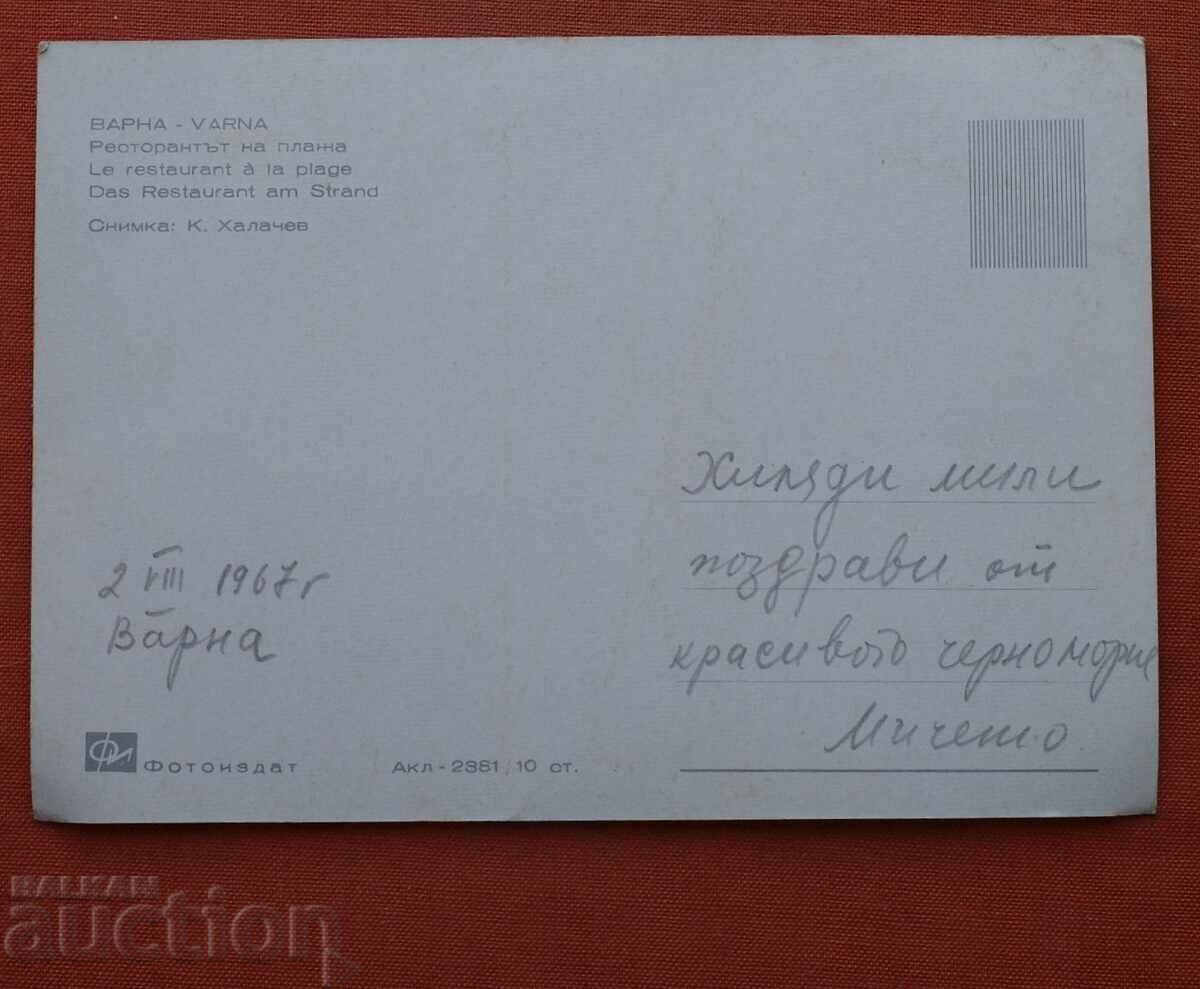 ВАРНА - VARNA
Ресторантът на плажа
Le restaurant à la plage
Das Restaurant am Strand
Снимка: К. Халачев
Хиляди мили
поздрави от
красивото черноморие
Мичето
2 VIII 1967 г
Варна
Фотоиздат
Акл-2381, 10 ст.
BALKAN
auction